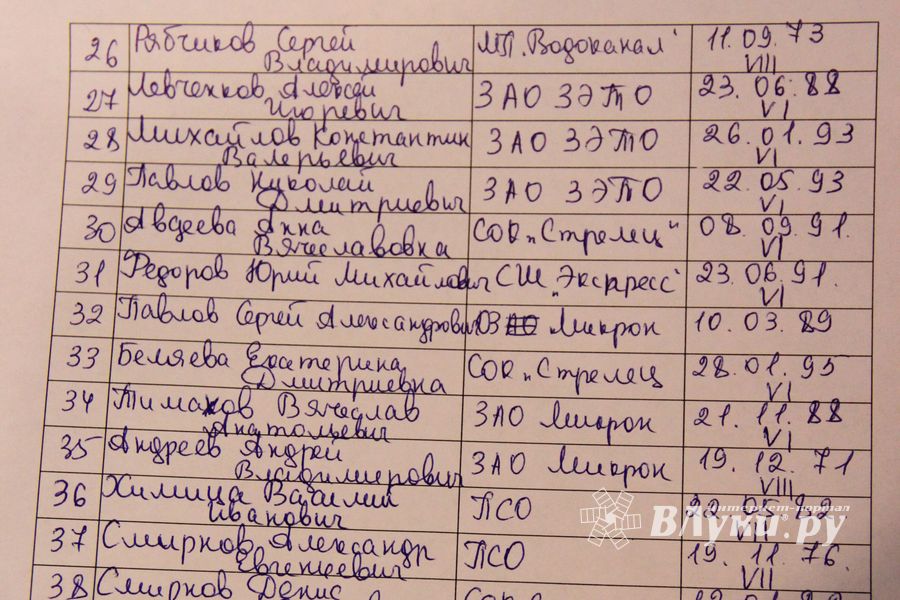 26 Рябчиков Сергей МП „Водоканал" 11. 09. 73
Владимирович VIII
27 Левченков Алексей ЗАО ЗЭТО 23. 06. 88
Игоревич VI
28 Михайлов Константин ЗАО ЗЭТО 26. 01. 93
Валерьевич VI
29 Павлов Николай ЗАО ЗЭТО 22. 05. 93
Дмитриевич VI
30 Авдеева Анна СОК „Стрелец" 08. 09. 91.
Вячеславовна VI
31 Федоров Юрий Михайлович СШ „Экспресс" 23. 06. 91.
VI
32 Павлов Сергей Александрович ОЗ Микрон 10. 03. 89
33 Беляева Екатерина СОК „Стрелец 28. 01. 95
Дмитриевна VI
34 Тимаков Вячеслав ЗАО Микрон 21. 11. 88
Анатольевич VI
35 Андреев Андрей ЗАО Микрон 19. 12. 71
Владимирович VIII
36 Химица Василий ПСО 22. 05. 82
Иванович
интернет-портал
ВЛуки.ру
37 Смирнов Александр ПСО 19. 11. 76.
Евгеньевич VII
38 Смирнов Денис